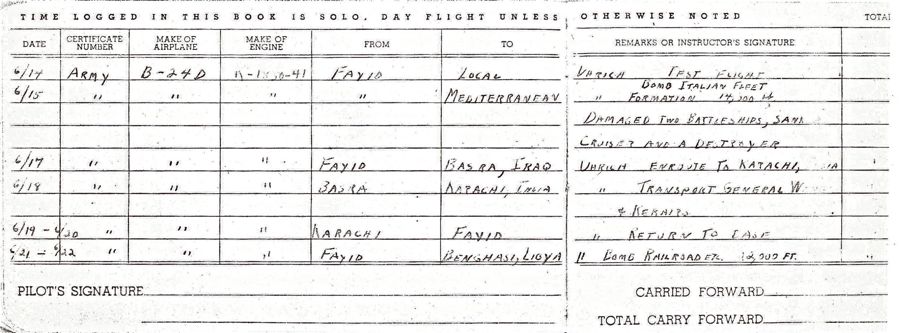 TIME LOGGED IN THIS BOOK IS SOLO, DAY FLIGHT UNLESS OTHERWISE NOTED TOTAL
DATE CERTIFICATE NUMBER MAKE OF AIRPLANE MAKE OF ENGINE FROM TO REMARKS OR INSTRUCTOR'S SIGNATURE
6/14 ARMY B-24D FAYID LOCAL UHRICH TEST FLIGHT
BOMB ITALIAN FLEET
6/15 " " " " MEDITERRANEAN " FORMATION
DAMAGED TWO BATTLESHIPS, SANK
CRUISER AND A DESTROYER
6/17 " " " FAYID BASRA, IRAQ UHRICH ENROUTE TO KARACHI,
6/18 " " " BASRA KARACHI, INDIA " TRANSPORT GENERAL W
& REPAIRS
6/19 - 6/20 " " " KARACHI FAYID " RETURN TO BASE
6/21 - 6/22 " " " FAYID BENGHASI, LIBYA " BOMB
PILOT'S SIGNATURE CARRIED FORWARD
TOTAL CARRY FORWARD